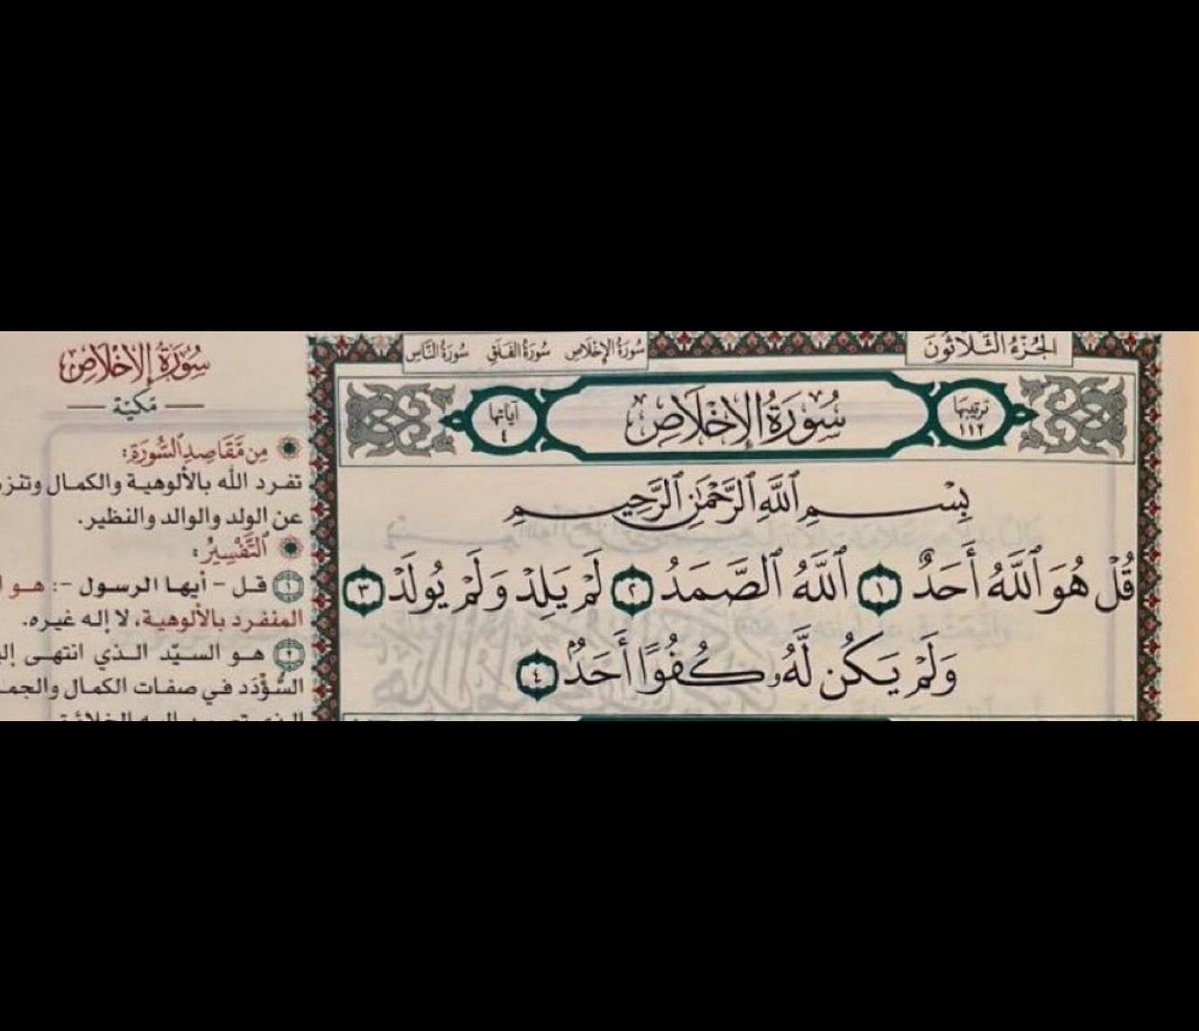 الجُزْءُ الثَّلَاثُونَ
سُورَةُ الإِخْلَاصِ سُورَةُ الفَلَقِ سُورَةُ النَّاسِ
ترتيبها ١١٢
سُورَةُ الإِخْلَاصِ
آياتها ٤
بِسْمِ ٱللَّهِ ٱلرَّحْمَٰنِ ٱلرَّحِيمِ
قُلْ هُوَ ٱللَّهُ أَحَدٌ ١ ٱللَّهُ ٱلصَّمَدُ ٢ لَمْ يَلِدْ وَلَمْ يُولَدْ ٣
وَلَمْ يَكُن لَّهُۥ كُفُوًا أَحَدٌۢ ٤
سُورَةُ الإِخْلَاصِ
مَكيّة
مِن مَّقَاصِدِ السُّورَةِ:
تفرد الله بالألوهية والكمال وتنزه
عن الولد والوالد والنظير.
التَّفْسِيرُ:
١ قل - أيها الرسول -: هو
المنفرد بالألوهية، لا إله غيره.
٢ هو السيّد الذي انتهى
السُّؤْدَد في صفات الكمال